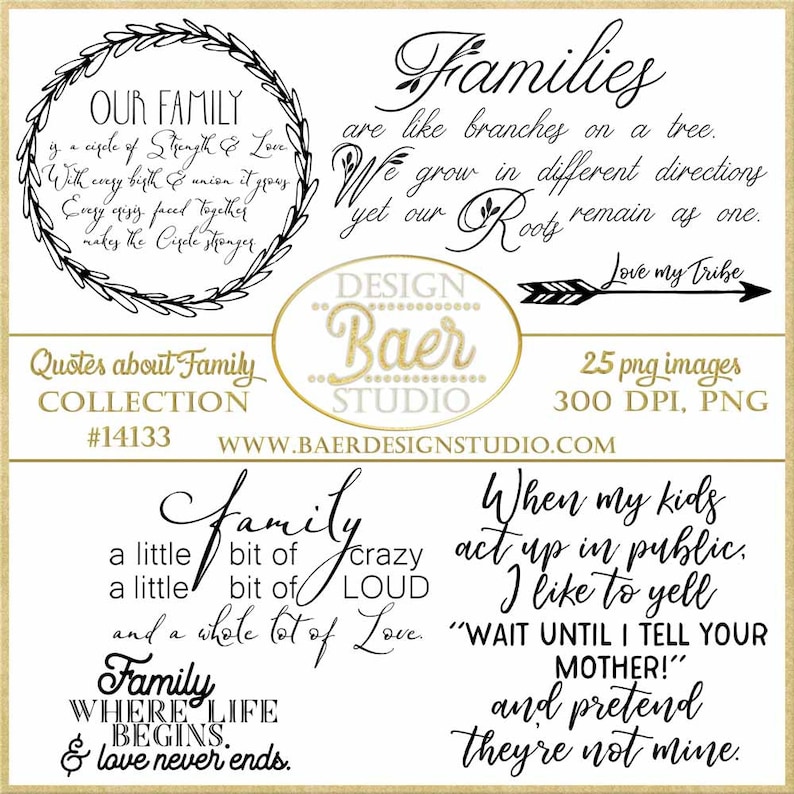 OUR FAMILY
is a circle of Strength & Love.
With every birth & union it grows
Every crisis faced together
makes the Circle stronger.
Families
are like branches on a tree.
We grow in different directions
yet our Roots remain as one.
Love my Tribe
Quotes about Family
COLLECTION
#14133
DESIGN
Baer
STUDIO
25 png images
300 DPI, PNG
WWW.BAERDESIGNSTUDIO.COM
family
a little bit of crazy
a little bit of LOUD
and a whole lot of Love.
Family
WHERE LIFE
BEGINS
& love never ends.
When my kids
act up in public,
I like to yell
"WAIT UNTIL I TELL YOUR
MOTHER!"
and pretend
they're not mine.